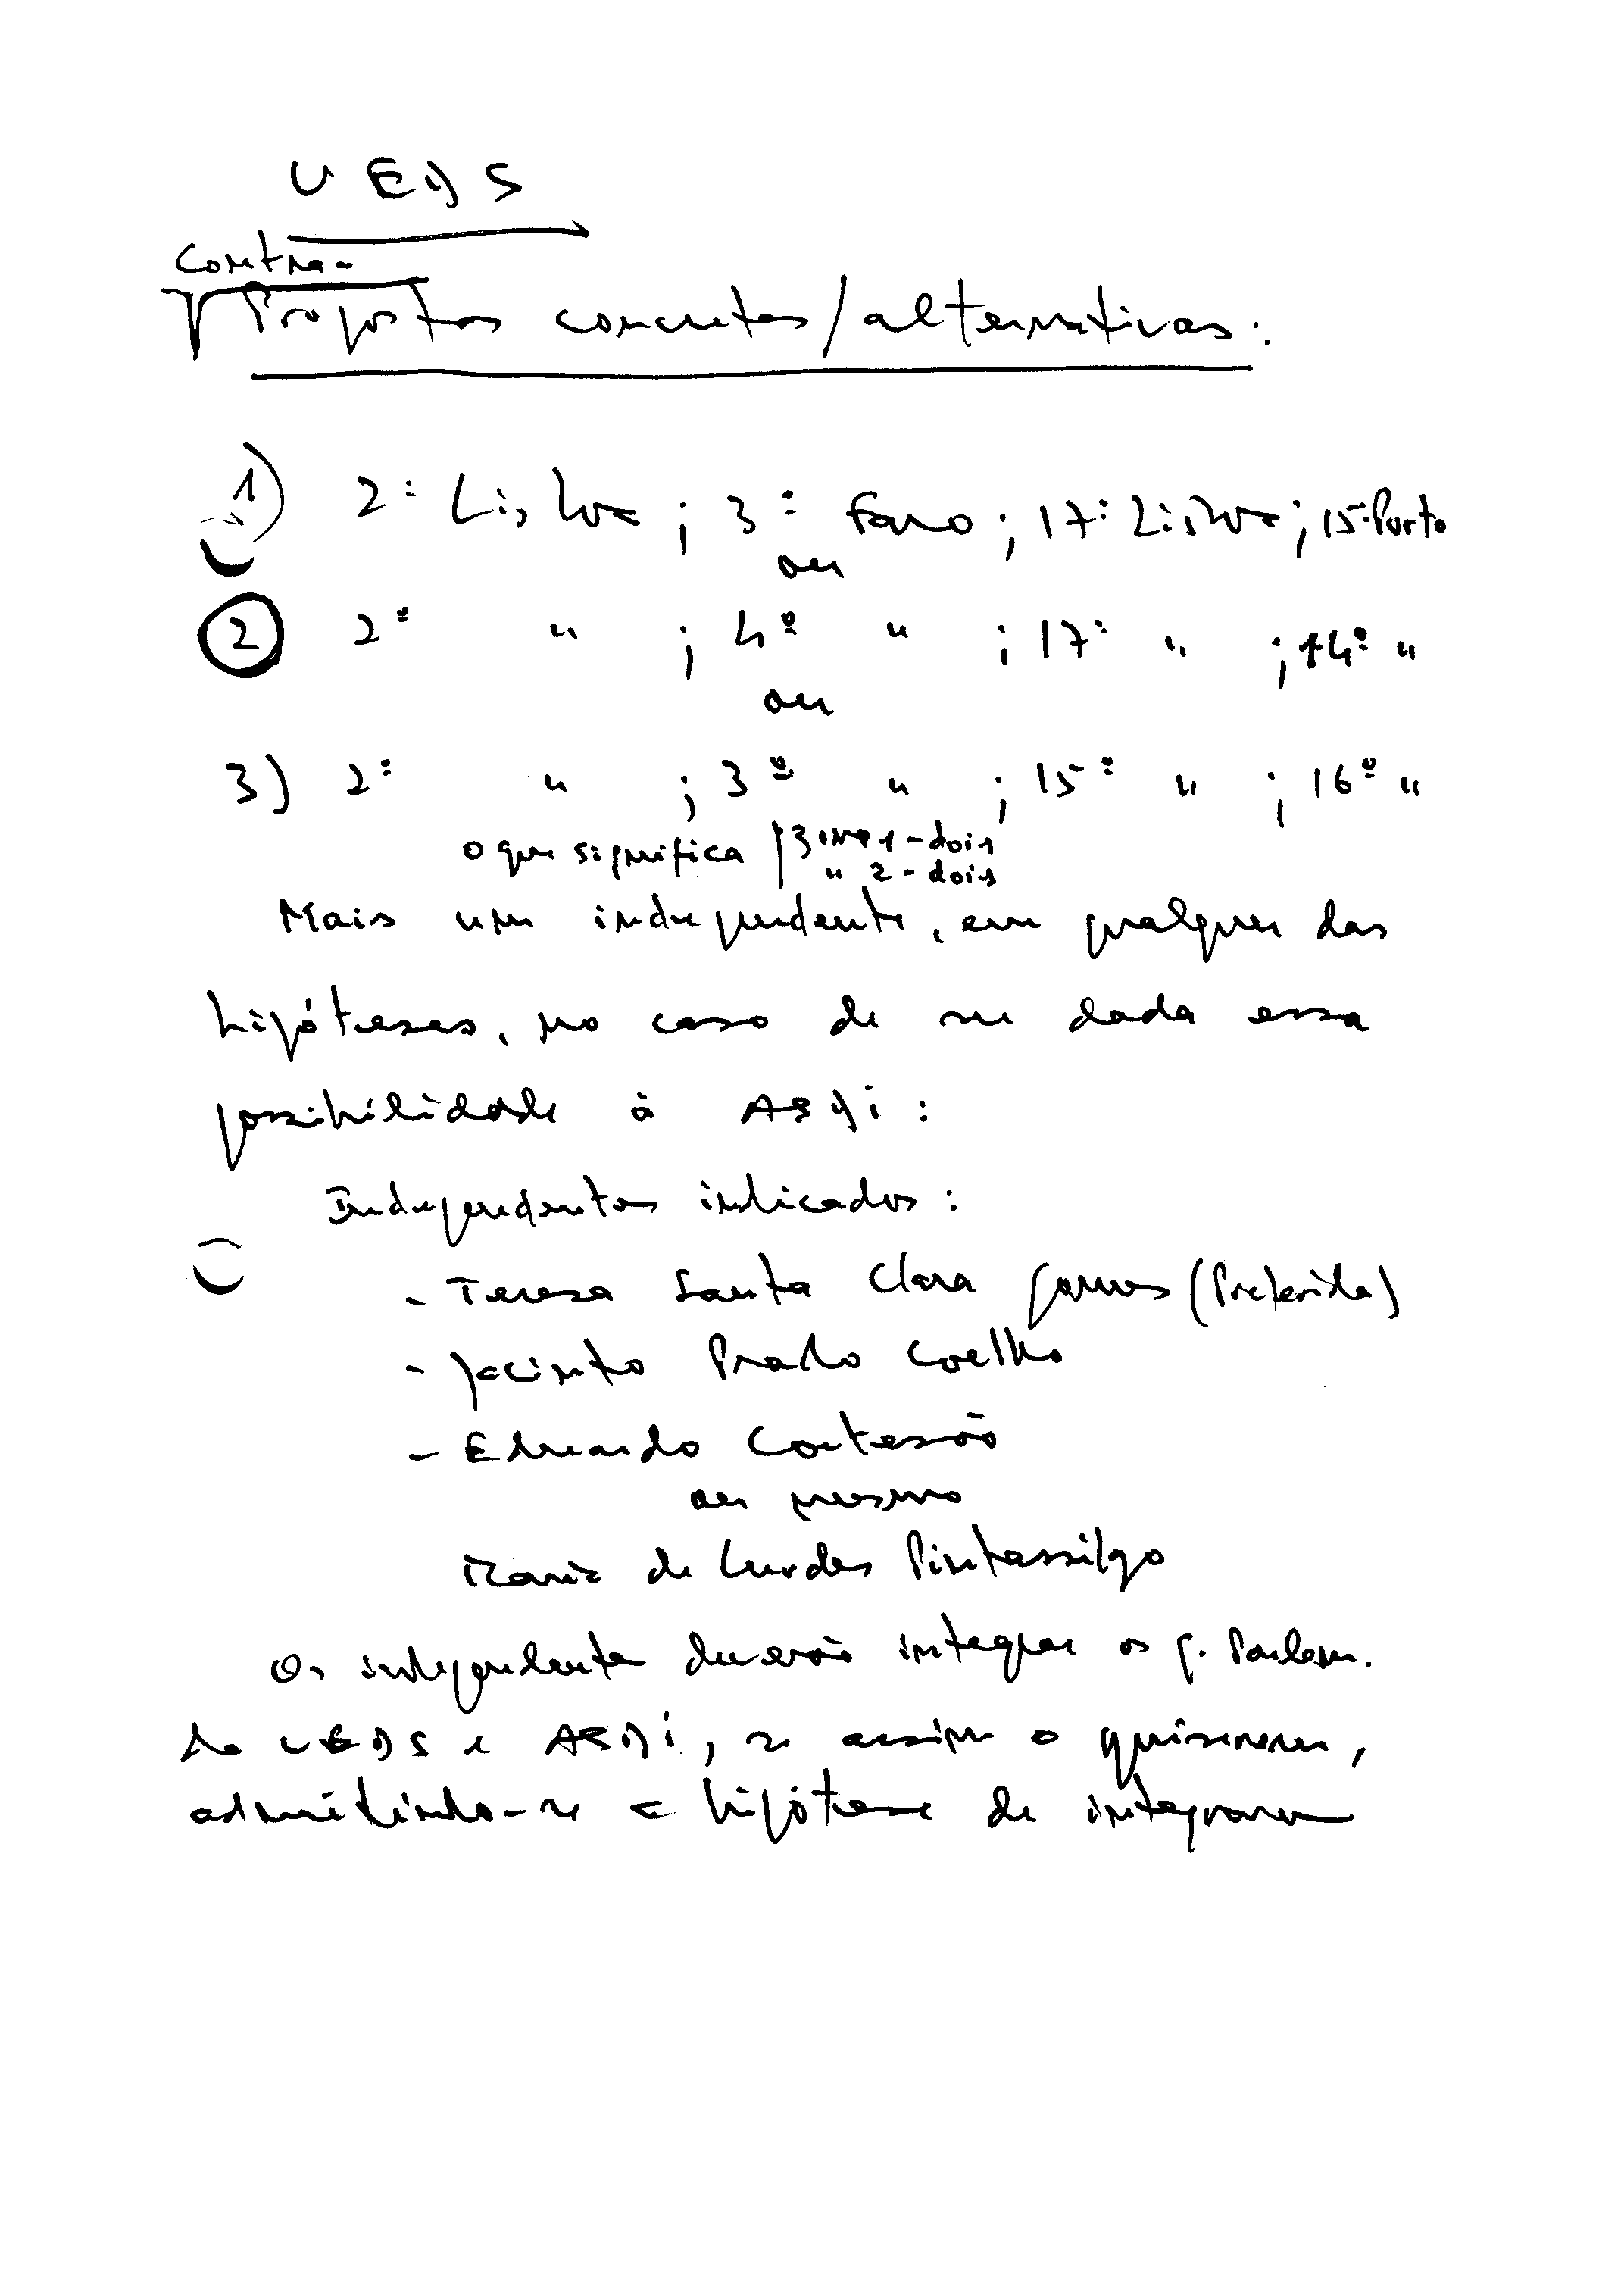 UEDS
Contra-
Propostas concretas/alternativas:
1) 2º Lisboa ; 3º Faro ; 17º Lisboa ; 15º Porto
ou
2 2º " ; 4º " ; 17º " ; 14º "
ou
3) 2º " ; 3º " ; 15º " ; 16º "
o que significa
" 2 - dois
Mais um independente, em qualquer das
hipóteses, no caso de ser dada essa
possibilidade à ASDI :
Independentes indicados :
- Teresa Santa Clara Gomes (Preferida)
- Jacinto Prado Coelho
- Eduardo Cortesão
ou mesmo
Maria de Lurdes Pintassilgo
Os independentes deverão integrar os g. Parlam.
da UEDS e ASDI, se assim o quiserem,
admitindo-se a hipótese de integrarem